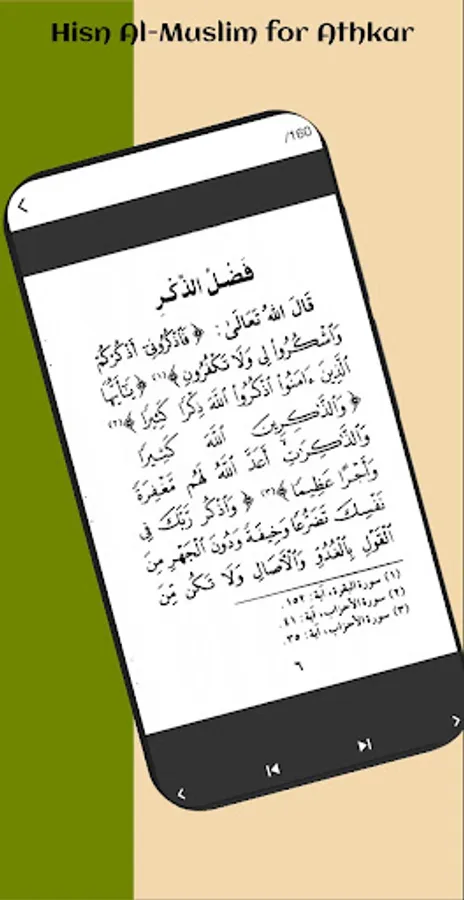 Hisn Al-Muslim for Athkar
/160
فَضْلُ الذِّكْرِ
قَالَ اللهُ تَعَالَىٰ: ﴿فَاذْكُرُونِي أَذْكُرْكُمْ
وَاشْكُرُوا لِي وَلَا تَكْفُرُونِ﴾(١) ﴿يَا أَيُّهَا
الَّذِينَ ءَامَنُوا اذْكُرُوا اللَّهَ ذِكْرًا كَثِيرًا﴾(٢)
﴿وَالذَّاكِرِينَ اللَّهَ كَثِيرًا
وَالذَّاكِرَاتِ أَعَدَّ اللَّهُ لَهُم مَّغْفِرَةً
وَأَجْرًا عَظِيمًا﴾(٣) ﴿وَاذْكُر رَّبَّكَ فِي
نَفْسِكَ تَضَرُّعًا وَخِيفَةً وَدُونَ الْجَهْرِ مِنَ
الْقَوْلِ بِالْغُدُوِّ وَالْآصَالِ وَلَا تَكُن مِّنَ
(١) سورة البقرة، آية: ١٥٢.
(٢) سورة الأحزاب، آية: ٤١.
(٣) سورة الأحزاب، آية: ٣٥.
٦